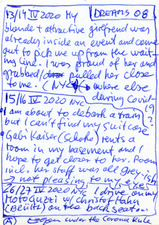 13/14 IV 2020 My DREAMS 08
blonde + attractive girlfriend was
already inside an event and come
out to pick me up from the wait-
ing line. I was proud of her and
grabbed/ pulled her close
to me. (NYC where else
15/16 IV 2020 NYC during Covid
I am about to debark a train
but I can't find my suitcase
Gabi Kaiser (Schoko) rents a
room in my basement and I
hope to get closer to her. Room
incl. her stuff was all grey-ish
not pleasing to my
26/27 IV 2020 NYC I drive on my
MotoGuzzi w/ Christof Hahn
on the back seat.
(A) under the Corona Rule